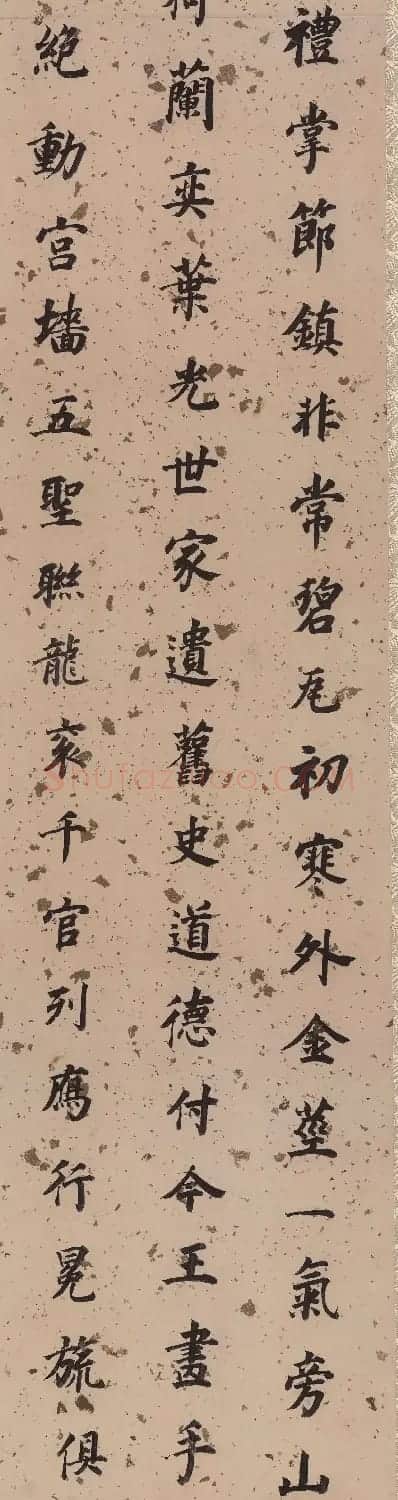 禮掌節鎮非常碧瓦初寒外金莖一氣旁山
蘭奕葉光世家遺舊史道德付今王畫手
絕動宮墻五聖聯龍衮千官列鴈行冕旒俱